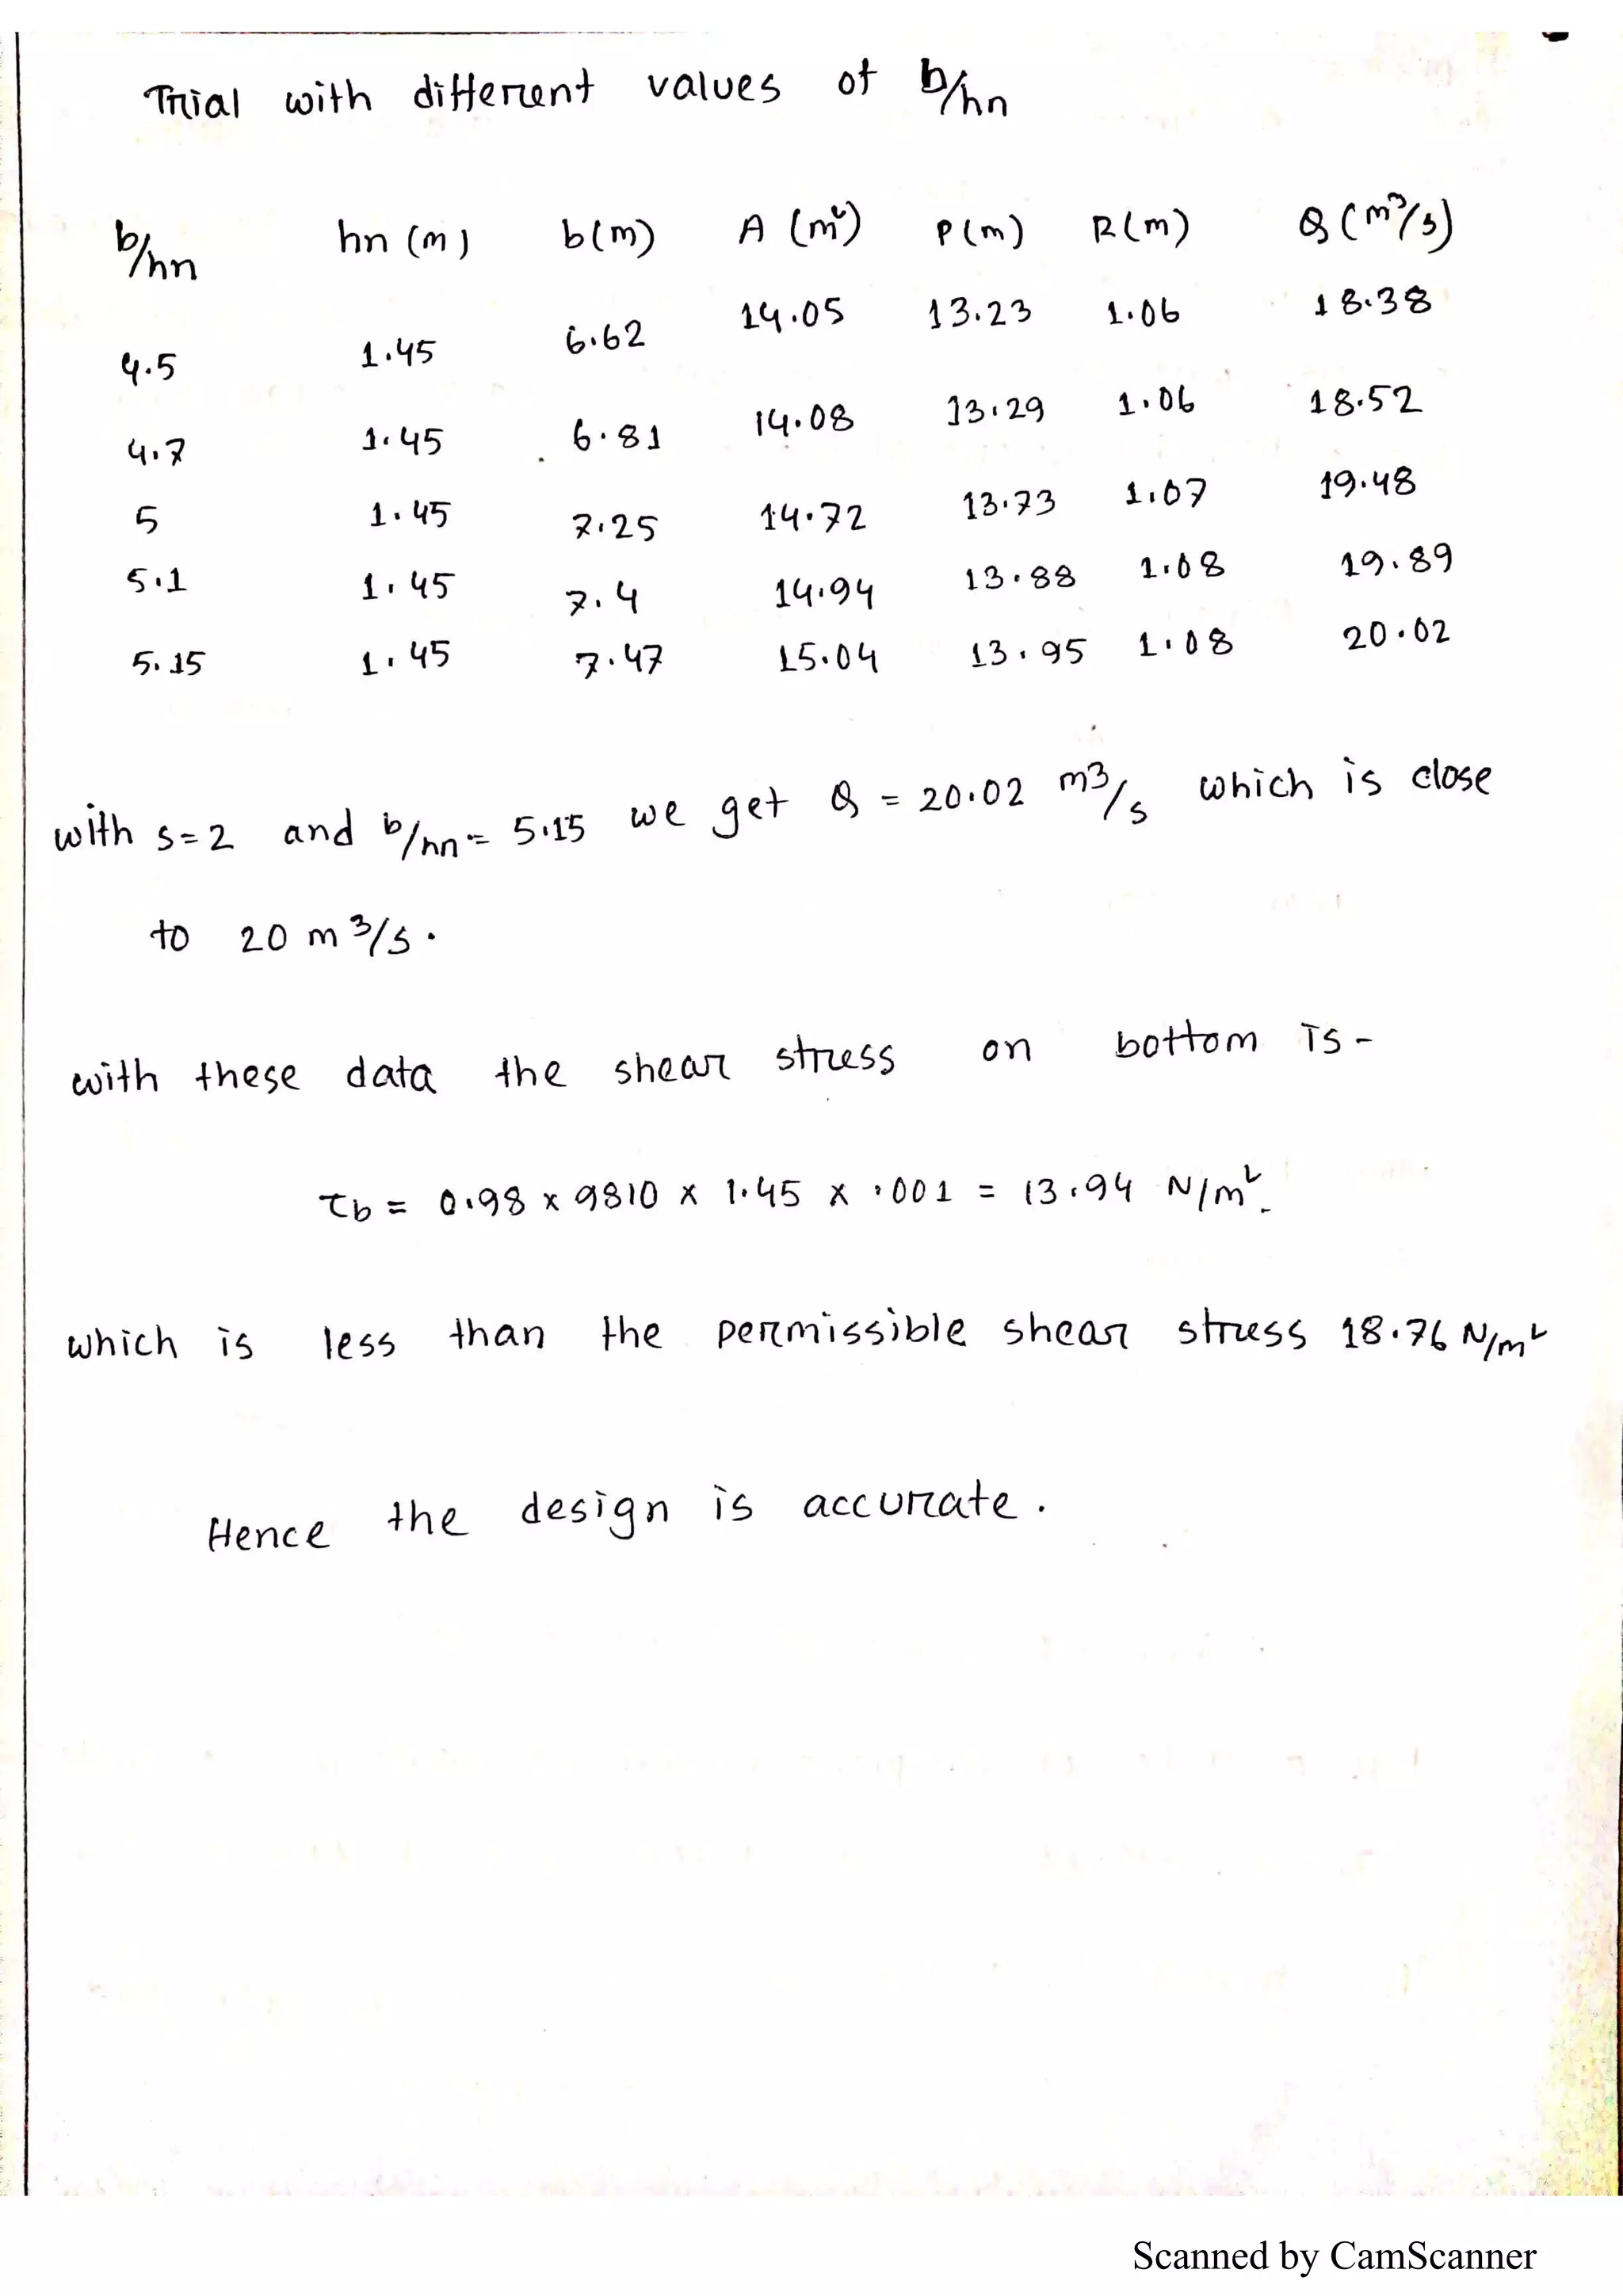 Trial with different values of b/hn
b/hn hn (m) b(m) A (m²) P(m) R(m) Q (m³/s)
4.5 1.45 6.62 14.05 13.23 1.06 18.38
4.7 1.45 6.81 14.08 13.29 1.06 18.52
5 1.45 7.25 14.72 13.73 1.07 19.48
5.1 1.45 7.4 14.94 13.88 1.08 19.89
5.15 1.45 7.47 15.04 13.95 1.08 20.02
with s=2 and b/hn = 5.15 we get Q = 20.02 m3/s which is close
to 20 m3/s.
with these data the shear stress on bottom is -
τb = 0.98 x 9810 x 1.45 x .001 = 13.94 N/m².
which is less than the permissible shear stress 18.76 N/m²
Hence the design is accurate.
Scanned by CamScanner